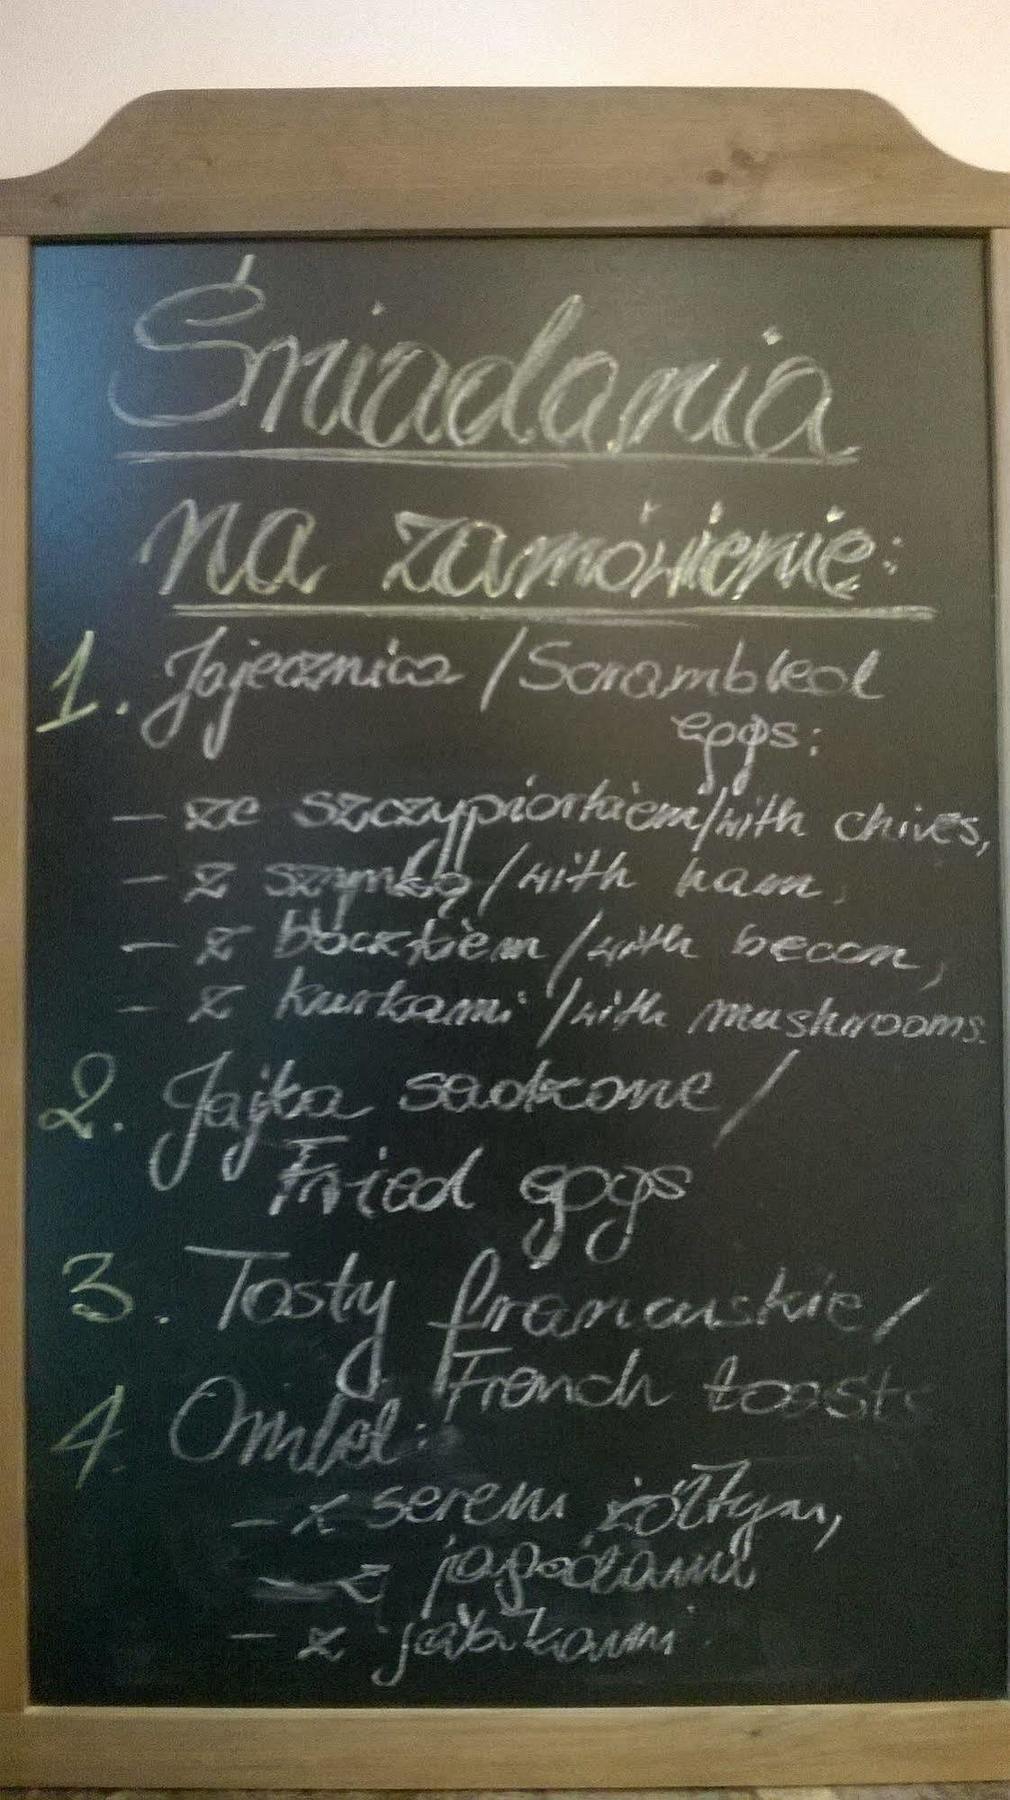 Śniadania
na zamówienie:
1. Jajecznica / Scrambled
eggs:
- ze szczypiorkiem/with chives,
- z szynką/with ham,
- z boczkiem/with becon,
- z kurkami/with mushrooms.
2. Jajka sadzone/
Fried eggs
3. Tosty francuskie/
French toasts
4. Omlet:
- z serem żółtym,
- z jagodami
- z jabłkami